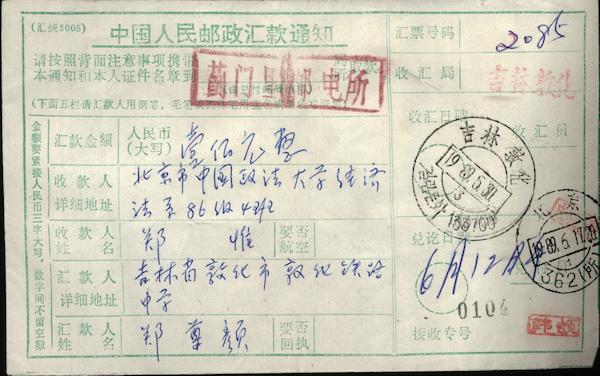 (汇统3005)
中国人民邮政汇款通知
请按照背面注意事项携带
本通知和本人证件名章到
蓟门里邮电所
取款
(下面五栏请汇款人用钢笔，毛笔
金额要紧接人民币三字大写，数字间不留空隙
汇款金额
人民币
(大写)
壹佰元整
收款人
详细地址
北京市中国政法大学经济
法系86级4班
收款人
姓名
郑 惟
要否
航空
汇款人
详细地址
吉林省敦化市敦化铁路
中学
汇款人
姓名
郑尊颜
要否
回执
汇票号码
2085
收汇局
吉林敦化
收汇日戳
收汇员
吉林敦化
133700
兑讫日戳
北京
1989.6.17.20
362(所)
6月12
0104
接收专号